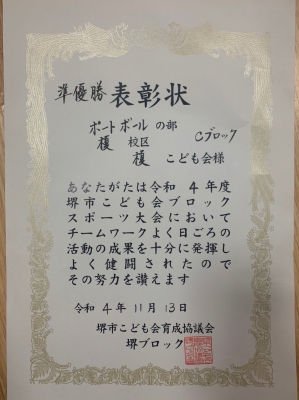 準優勝 表彰状
ポートボール の部 Cブロック
榎 校区
榎 こども会様
あなたがたは令和 4 年度
堺市こども会ブロック
スポーツ大会において
チームワークよく日ごろの
活動の成果を十分に発揮し
よく健闘されたので
その努力を讃えます
令和 4 年 11 月 13 日
堺市こども会育成協議会
堺ブロック